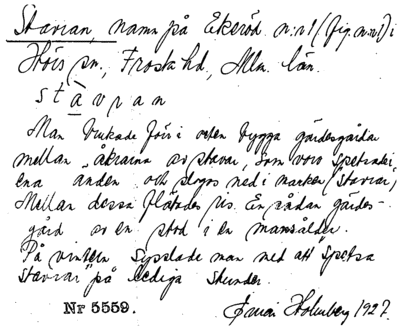 Stavran, namn på Ekeröd n:r 1 (fig. n:r 1) i
Hörs sn, Frosta hd, Mlm. län.
stàvran
Man brukade förr i orten bygga gärdesgårdar
mellan åkrarna av stavar, som voro spetsade i
ena änden och slogos ned i marken ("stavrar",
Mellan dessa flätades ris. En sådan gärdes-
gård av en stod i en mansålder.
På vintern sysslade man med att "spetsa
stavrar" på lediga stunder.
Nr 5559.
Holmberg 1927.